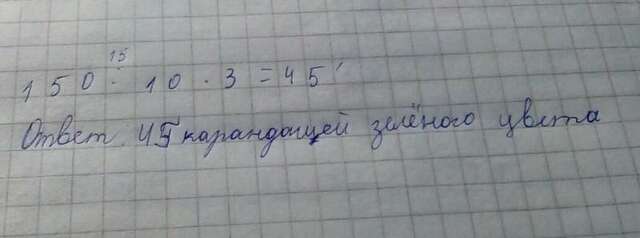 15
150 : 10 · 3 = 45
Ответ 45 карандашей зелёного цвета